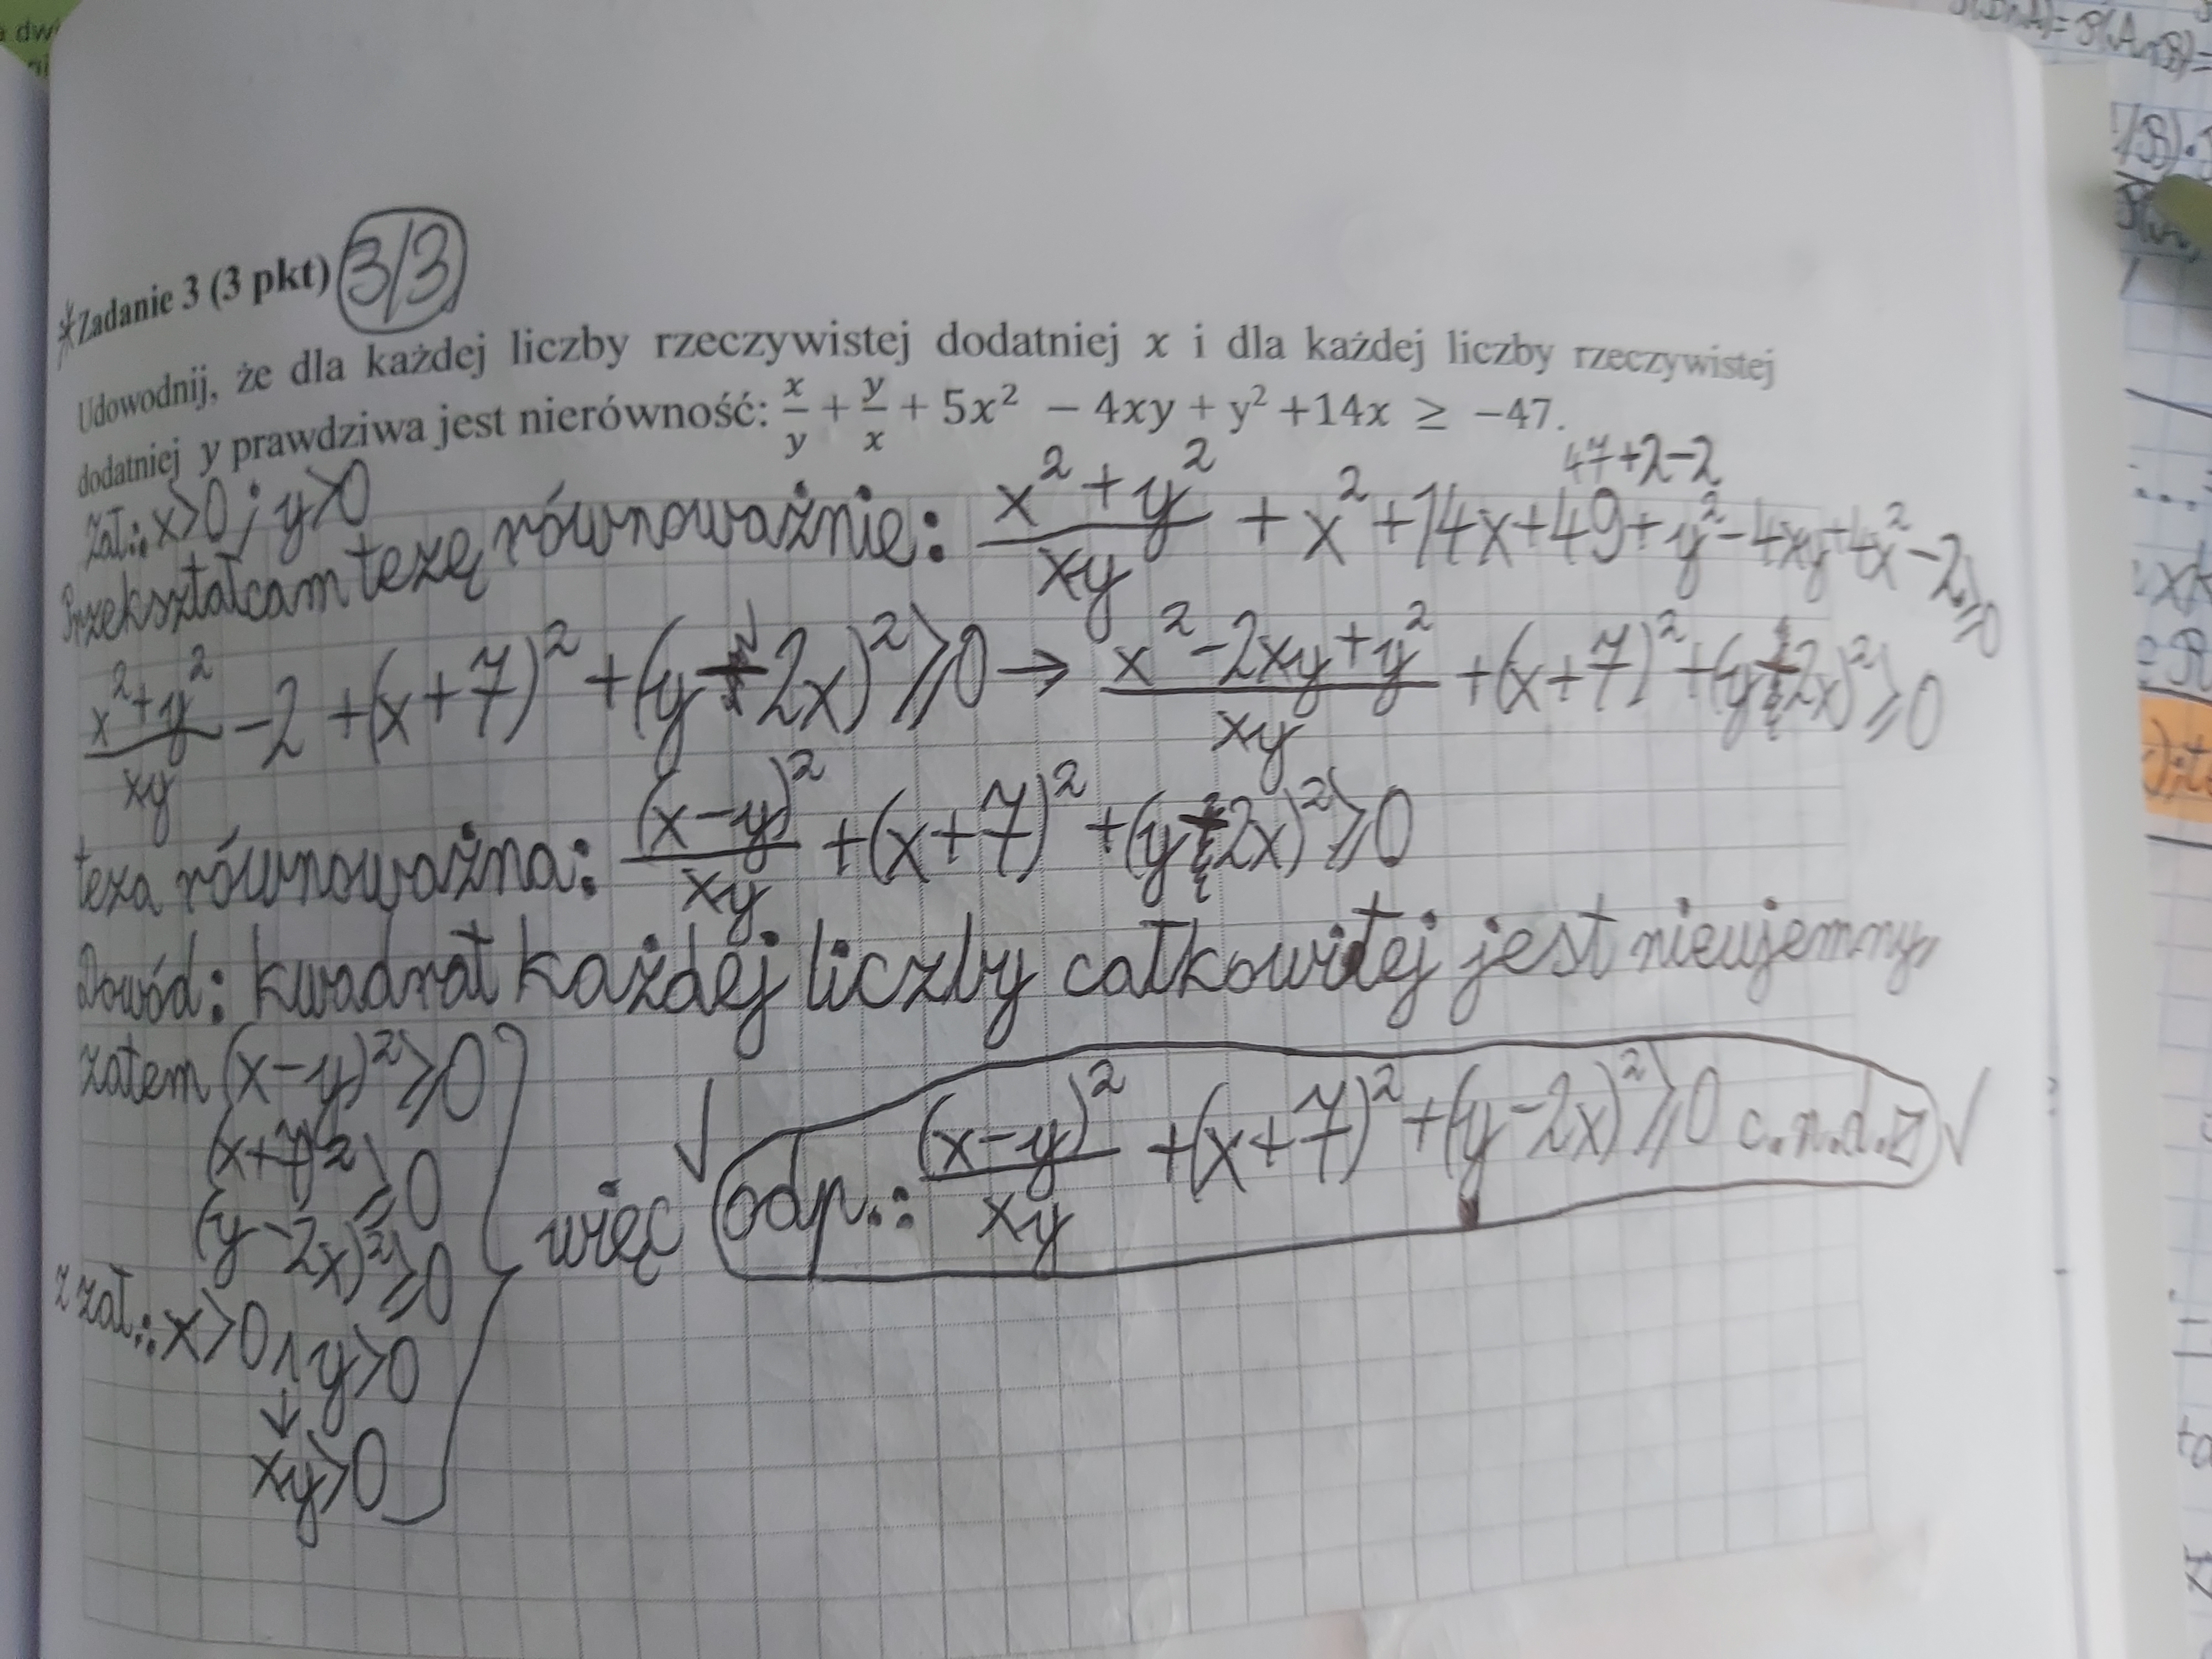 *Zadanie 3 (3 pkt) 3/3
Udowodnij, że dla każdej liczby rzeczywistej dodatniej x i dla każdej liczby rzeczywistej
dodatniej y prawdziwa jest nierówność: x/y + y/x + 5x² − 4xy + y² +14x ≥ −47.
47+2−2
zał.: x>0 ; y>0
Przekształcam tezę równoważnie: (x²+y²)/xy + x²+14x+49+y²−4xy+4x²−2≥0
(x²+y²)/xy −2 +(x+7)²+(y−2x)²≥0 → (x²−2xy+y²)/xy +(x+7)²+(y−2x)²≥0
teza równoważna: (x−y)²/xy +(x+7)²+(y−2x)²≥0
Dowód: kwadrat każdej liczby całkowitej jest nieujemny,
zatem (x−y)²≥0
(x+7)²≥0
(y−2x)²≥0
więc √ odp.: (x−y)²/xy +(x+7)²+(y−2x)²≥0 c.n.d.z √
z zał.: x>0 ∧ y>0
↓
xy>0